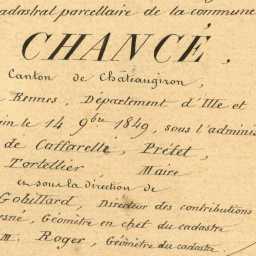 cadastral parcellaire de la commune
CHANCÉ,
Canton de Chateaugiron,
Rennes, Département d'Ille et
le 14 9bre 1849, sous l'adminis
de Caffarelle, Préfet,
Tortellier, Maire
en sous la direction de
Gobillard, Directeur des contributions
Géomètre en chef du cadastre
m. Roger, Géomètre du cadastre